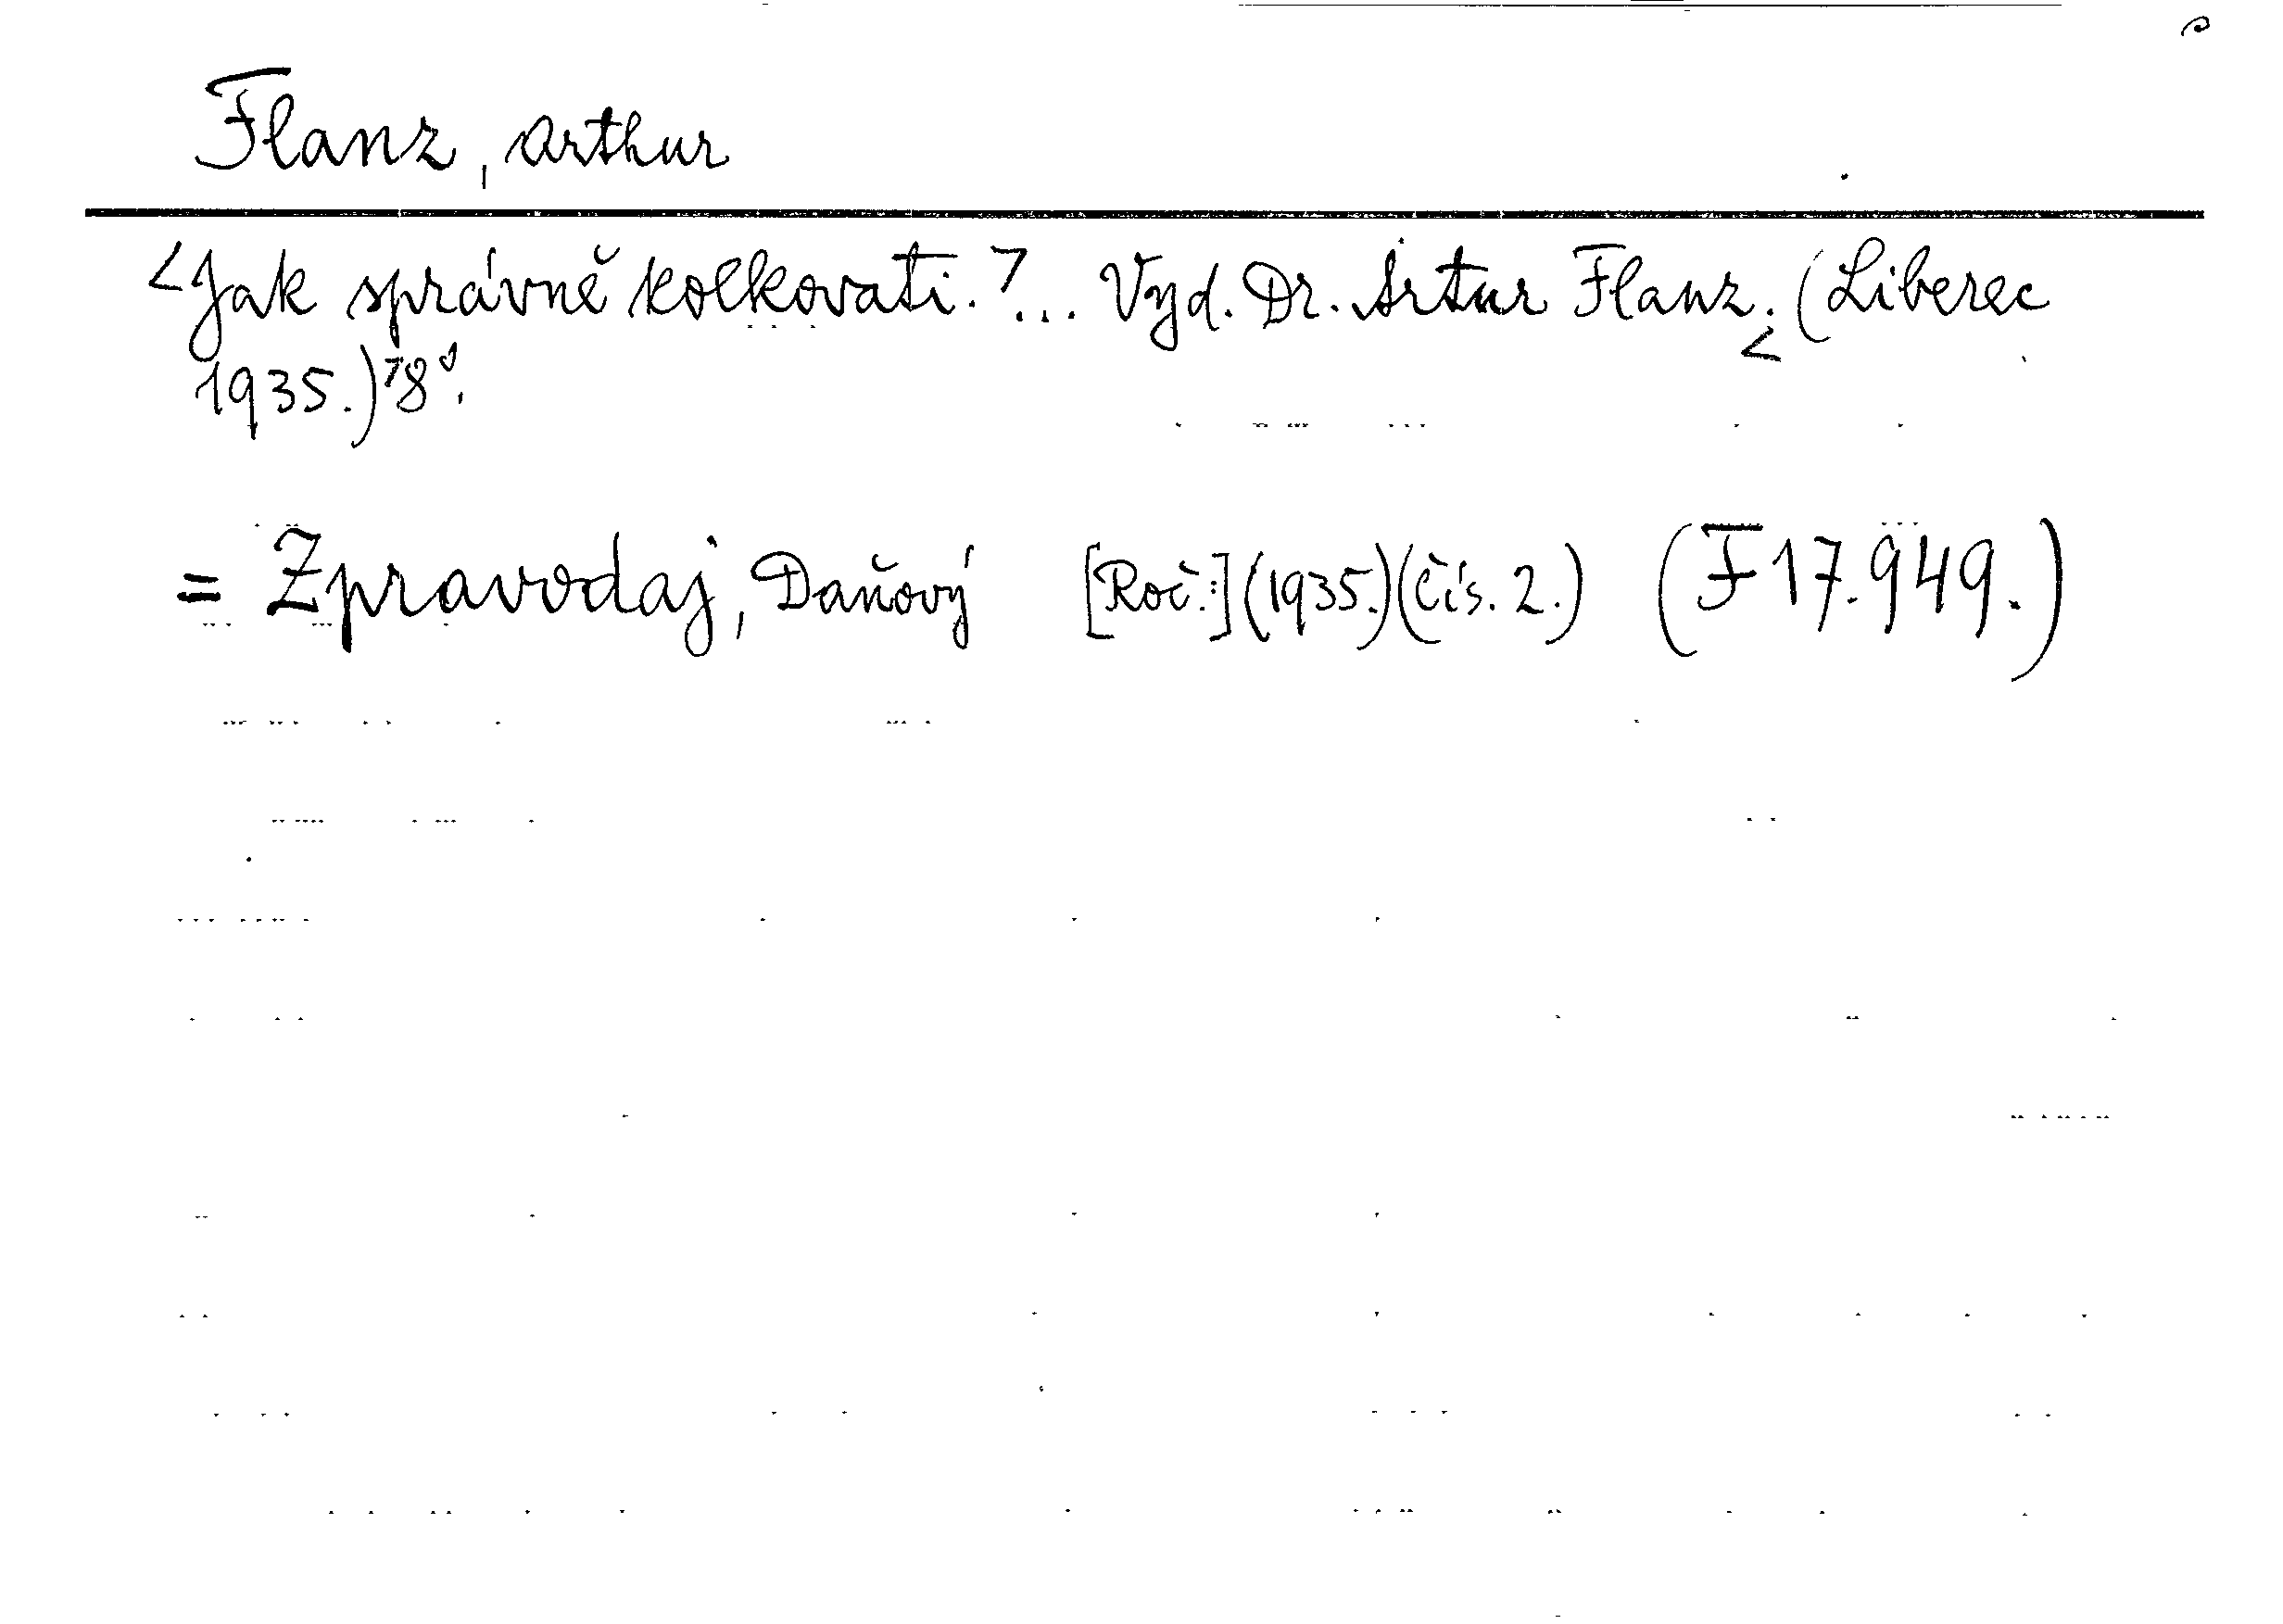 Flanz, Arthur
<Jak správně kolkovati.>... Vyd. Dr. Artur Flanz. <(Liberec
1935.)> 8°.
= Zpravodaj, Daňový [Roč.:] (1935.) (Čís. 2.) (F 17.949.)